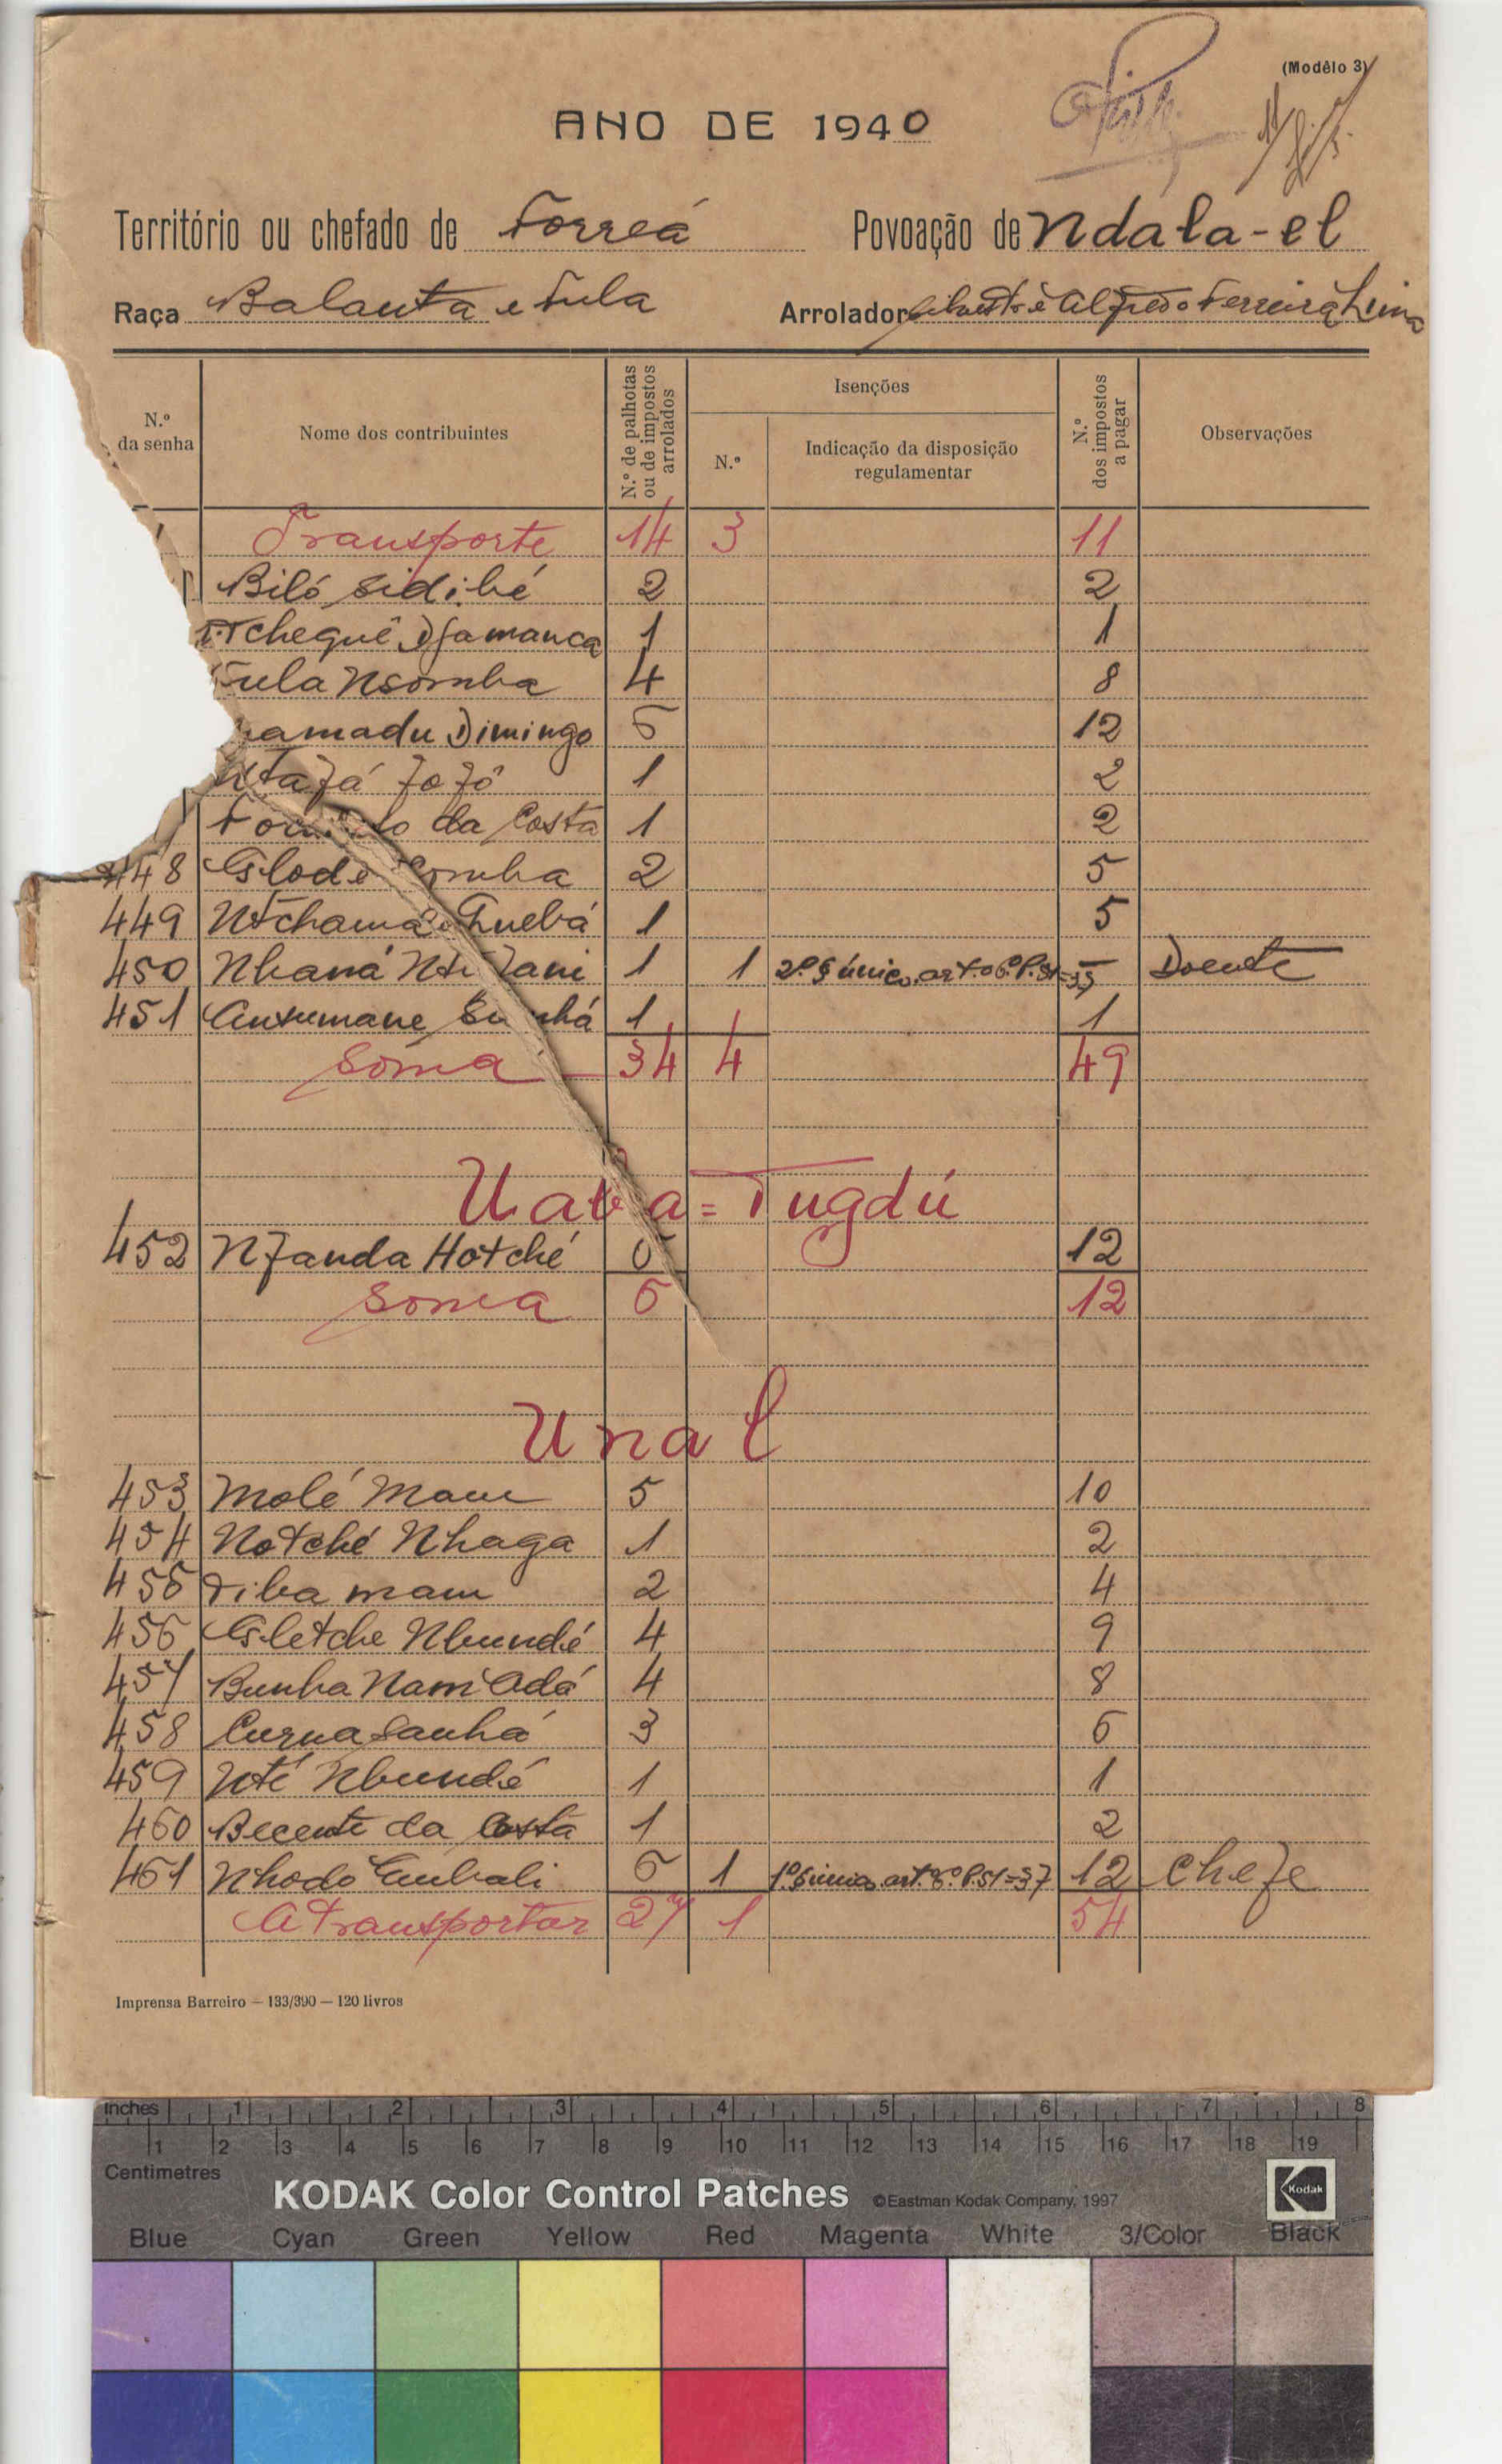 (Modêlo 3)
ANO DE 1940
Território ou chefado de Forreá Povoação de Ndála-el
Raça Balanta e Fula Arrolador Alfredo Ferreira Lima
N.º da senha
Nome dos contribuintes
N.º de palhotas ou de impostos arrolados
Isenções
N.º
Indicação da disposição regulamentar
N.º dos impostos a pagar
Observações
Transporte 14 3 11
Biló Sidibé 2 2
Tchequê Djamanca 1 1
Fula Nsomba 4 8
amadu Dimingo 6 12
1 2
da Costa 1 2
448 Glodé Somba 2 5
449 Ntchama Quebá 1 5
450 Nhaná 1 1 2º § único art.º 6º P. 51=35 Doente
451 Ansumane 1 1
Soma 34 4 49
Tugdú
452 Nfanda Hotché 6 12
Soma 6 12
Unal
453 Molé Mam 5 10
454 Notché Nhaga 1 2
455 Tiba mam 2 4
456 Gletche Nbundé 4 9
457 Bunha Nam Adá 4 8
458 Curna Sanhá 3 6
459 Nté Nbundé 1 1
460 Becente da Costa 1 2
461 Nhodo Embali 6 1 12 Chefe
A transportar 27 1 54
Imprensa Barreiro — 133/390 — 120 livros
inches 1 2 3 4 5 6 7 8
1 2 3 4 5 6 7 8 9 10 11 12 13 14 15 16 17 18 19
Centimetres
KODAK Color Control Patches ©Eastman Kodak Company, 1997 Kodak
Blue Cyan Green Yellow Red Magenta White 3/Color Black